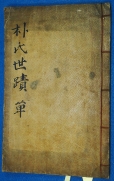 朴氏世蹟 單